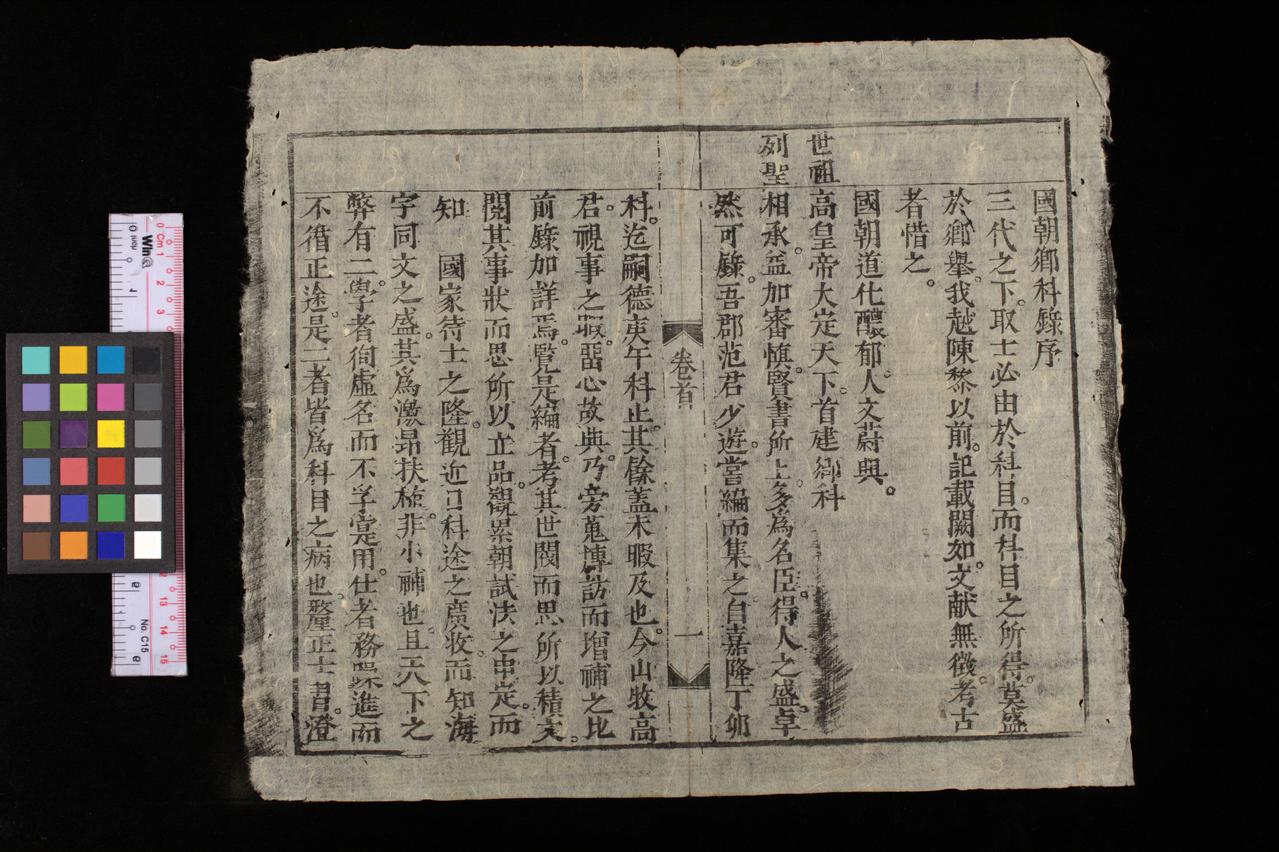 國朝鄉科錄序
三代之下。取士必由於科目。而科目之所得。莫盛
於鄉舉。我越陳黎以前。記載闕如。文献無徵。考古
者惜之。
國朝道化醲郁。人文蔚興。
世祖高皇帝大定天下。首建鄉科
列聖相承。益加審慎。賢書所上。多為名臣。得人之盛。卓
然可錄。吾郡范君少遊。嘗編而集之。自嘉隆丁卯
卷首
一
科。迄嗣德庚午科止。其餘蓋未暇及也。今山牧高
君。視事之暇。畱心故典。乃旁蒐博訪而增補之。比
前錄加詳焉。覽是編者。考其世閥而思所以積文。
閱其事狀而思所以立品。觀累朝試法之申定。而
知 國家待士之隆。觀近日科途之廣收。而知海
字同文之盛。其為激昂扶植。非小補也。且天下之
弊有二。學者徇虛名而不孚寔用。仕者務躁進而
不循正途。是二者皆為科目之病也。釐正士習。澄
Win
0 Cm 1
2
3
12
13
14
15
No. C15